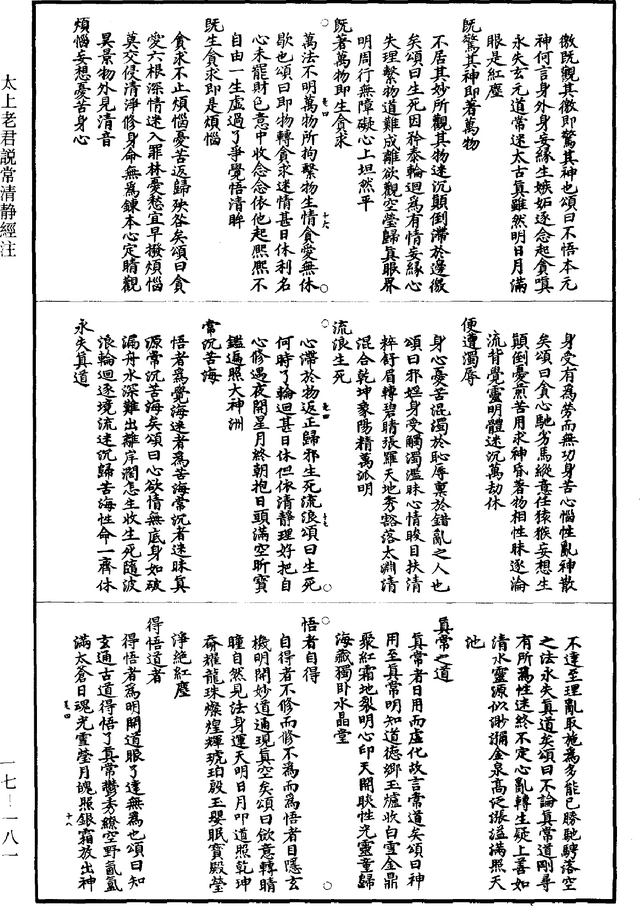 徼既觀其徼即驚其神也頌曰不悟本元
神何言身外身妄緣生嫉妬逐念起貪嗔
永失玄元道常迷太古真雖然明日月滿
眼是紅塵
既驚其神即著萬物
不居其妙所觀其物迷沉顛倒滯於邊徼
矣頌曰生死因矜泰輪迴為有情妄緣心
失理繫物道難成離欲觀空瑩歸真眼界
明周行無障礙心上坦然平
既著萬物即生貪求
萬法不明萬物所拘繫物生情貪愛無休
歇也頌曰即物轉貪求迷情甚日休利名
心未罷財色意中收念念依他起熈熈不
自由一生虛過了爭覺悟清眸
既生貪求即是煩惱
貪求不止煩惱憂苦返歸殃咎矣頌曰貪
愛六根深情迷入罪林憂愁宜早撥煩惱
莫交侵清淨修身命無為鍊本心定睛觀
異景物外見清音
煩惱妄想憂苦身心
身受有為勞而無功身苦心惱性亂神散
矣頌曰貪心馳劣馬縱意任猿猴妄想生
顛倒憂煎苦用求神昏著物相性昧逐淪
流背覺靈明體迷沉萬劫休
便遭濁辱
身心憂苦混濁於恥辱稟於錯亂之人也
頌曰邪婬身受觸濁濫昧心情睃目扶清
粹舒眉轉碧睛張羅天地秀豁落太淵清
混合乾坤象陽精萬派明
流浪生死
心滯於物返正歸邪生死流浪頌曰生死
何時了輪迴甚日休但依清靜理好把自
心修遇夜開星月終朝抱日頭滿空昕寶
鑑遍照大神洲
常沉苦海
悟者為覺海迷者為苦海常沉者迷昧真
源常沉苦海矣頌曰心欲情無底身如破
漏舟水深難出離岸濶怎生收生死隨波
浪輪迴逐境流迷沉歸苦海性命一齊休
永失真道
不達至理亂取施為多能已勝馳騁落空
之法永失真道矣頌曰不論真常道剛尋
有所為性迷終不定心亂轉生疑上善如
清水靈源似湖瀰金泉高泛漲溢滿照天
池
真常之道
真常者日用而虛化故言常道矣頌曰神
用至真常明知道德鄉玉爐收白雪金鼎
聚紅霜地裂明心印天開映性光靈童歸
海藏獨卧水晶堂
悟者自得
自得者不修而修不為而為悟者目隱玄
機明開妙道通現真空矣頌曰斂意轉睛
瞳自然見法身運天明日月叩道照乾坤
奔耀龍珠燦煌輝琥珀殷玉嬰眠寶殿瑩
淨絕紅塵
得悟道者
得悟者為明開道眼了達無為也頌曰知
玄通古道得悟了真常鬱秀繚空野氤氳
滿太蒼日魂光靈瑩月魄照銀霜放出神
太上老君說常清靜經注
一七-一八一